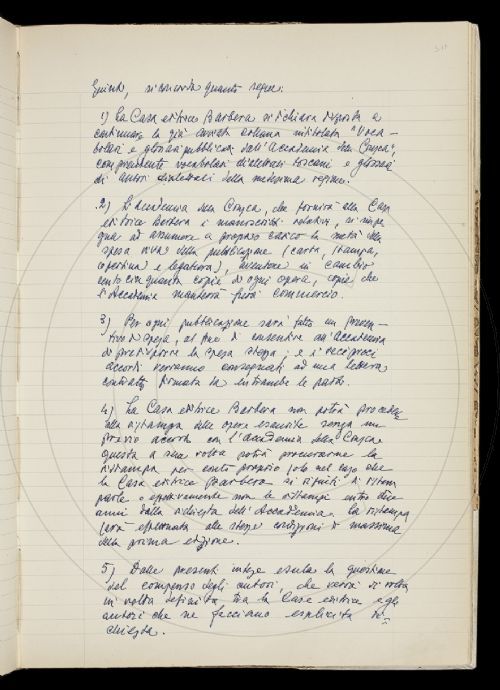 Quindi, si concorda quanto segue:
1) La Casa editrice Barbera si dichiara disposta a
continuare la già avviata collana intitolata "Voca-
bolari e glossari pubblicati dall'Accademia della Crusca",
comprendente vocabolari dialettali toscani e glossari
di autori dialettali della medesima regione.
2) L'Accademia della Crusca, che fornirà alla Casa
editrice Barbera i manoscritti relativi, si impe
gna ad assumere a proprio carico la metà della
spesa viva della pubblicazione (carta, stampa,
copertina e legatura), avendone in cambio
centocinquanta copie di ogni opera, copie che
l'Accademia manderà fuori commercio.
3) Per ogni pubblicazione sarà fatto un preven-
tivo di spesa, al fine di consentire all'Accademia
di predisporre la spesa stessa; e i reciproci
accordi verranno consegnati ad una lettera
contratto firmata da entrambe le parti.
4) La Casa editrice Barbera non potrà procedere
alla ristampa delle opere esaurite senza un
previo accordo con l'Accademia della Crusca.
Questa a sua volta potrà procurarne la
ristampa per conto proprio solo nel caso che
la Casa editrice Barbera si rifiuti di ristam
parle o effettivamente non le ristampi entro due
anni dalla richiesta dell'Accademia. La ristampa
sarà effettuata alle stesse condizioni di massima
della prima edizione.
5) Dalle presenti intese esula la questione
del compenso degli autori, che verrà di volta
in volta definita tra la Casa editrice e gli
autori che ne facciano esplicita ri-
chiesta.